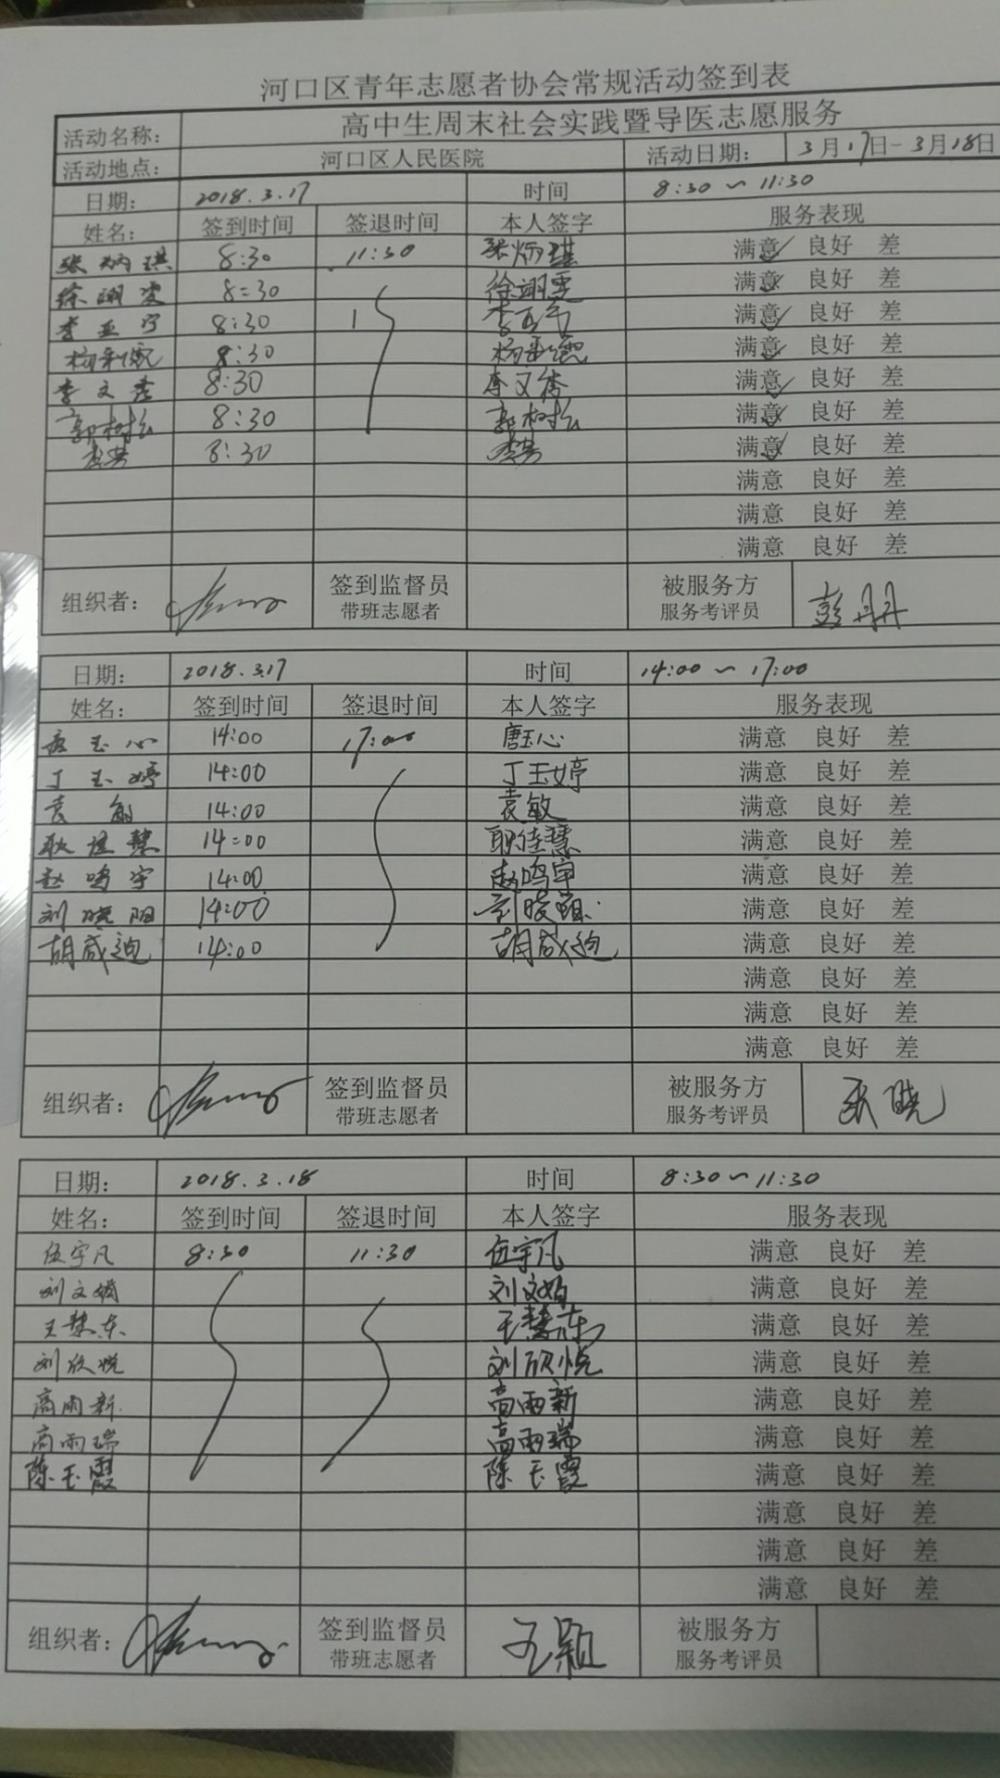 河口区青年志愿者协会常规活动签到表
活动名称: 高中生周末社会实践暨导医志愿服务
活动地点: 河口区人民医院 活动日期: 3月17日-3月18日
日期: 2018.3.17 时间 8:30～11:30
姓名: 签到时间 签退时间 本人签字 服务表现
张炳琪 8:30 11:30 张炳琪 满意✓ 良好 差
徐翊雯 8:30 徐翊雯 满意✓ 良好 差
李亚宁 8:30 李亚宁 满意✓ 良好 差
8:30 满意✓ 良好 差
李文秀 8:30 李文秀 满意✓ 良好 差
郭树松 8:30 郭树松 满意✓ 良好 差
8:30 满意✓ 良好 差
满意 良好 差
满意 良好 差
满意 良好 差
组织者: 签到监督员 被服务方 彭丹丹
带班志愿者 服务考评员
日期: 2018.3.17 时间 14:00～17:00
姓名: 签到时间 签退时间 本人签字 服务表现
唐玉心 14:00 17:00 唐玉心 满意 良好 差
丁玉婷 14:00 丁玉婷 满意 良好 差
袁敏 14:00 袁敏 满意 良好 差
耿佳慧 14:00 耿佳慧 满意 良好 差
赵鸣宇 14:00 赵鸣宇 满意 良好 差
刘晓阳 14:00 满意 良好 差
胡成迪 14:00 胡成迪 满意 良好 差
满意 良好 差
满意 良好 差
满意 良好 差
组织者: 签到监督员 被服务方
带班志愿者 服务考评员
日期: 2018.3.18 时间 8:30～11:30
姓名: 签到时间 签退时间 本人签字 服务表现
伍宇凡 8:30 11:30 伍宇凡 满意 良好 差
刘文娟 刘文娟 满意 良好 差
王慧东 王慧东 满意 良好 差
刘欣悦 刘欣悦 满意 良好 差
高雨新 高雨新 满意 良好 差
高雨瑞 高雨瑞 满意 良好 差
陈玉霞 陈玉霞 满意 良好 差
满意 良好 差
满意 良好 差
满意 良好 差
组织者: 签到监督员 王颖 被服务方
带班志愿者 服务考评员